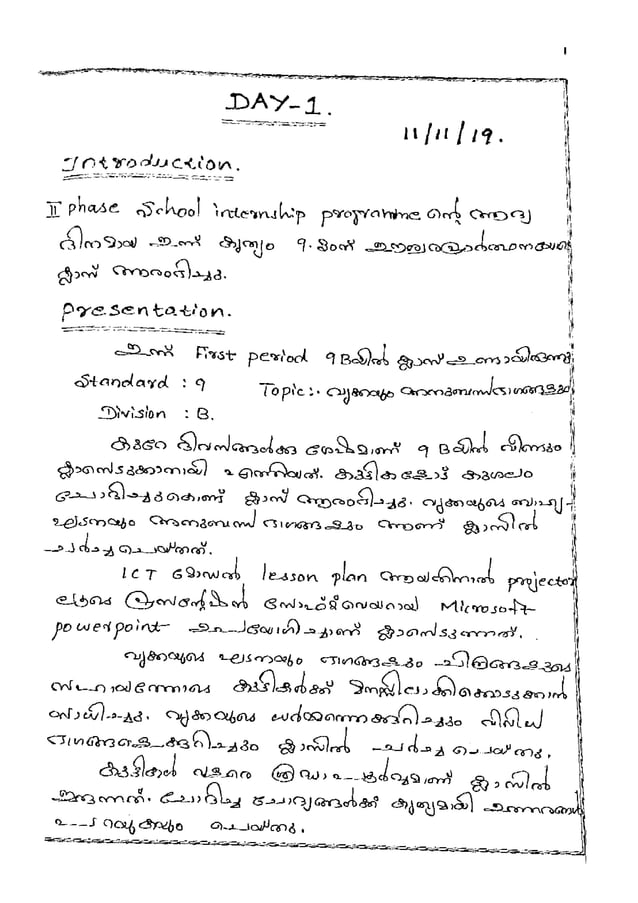 1
DAY-1.
11/11/19.
Introduction.
II phase School internship programme ന്റെ ആദ്യ
ദിനമായ ഇന്ന് കൃത്യം 9.30ന് ഈശ്വരപ്രാർത്ഥനയോടെ
ക്ലാസ് ആരംഭിച്ചു.
Presentation.
ഇന്ന് First period 9 Bയിൽ ക്ലാസ് ഉണ്ടായിരുന്നു
Standard : 9 Topic:- വൃക്കയും അനുബന്ധഭാഗങ്ങളും
Division : B.
കുറേ ദിവസങ്ങൾക്കു ശേഷമാണ് 9 Bയിൽ വീണ്ടും
ക്ലാസെടുക്കാനായി എത്തിയത്. കുട്ടികളോട് കുശലം
ചോദിച്ചുകൊണ്ട് ക്ലാസ് ആരംഭിച്ചു. വൃക്കയുടെ ബാഹ്യ-
ഘടനയും അനുബന്ധ ഭാഗങ്ങളും ആണ് ക്ലാസിൽ
ചർച്ച ചെയ്തത്.
ICT മോഡൽ lesson plan ആയതിനാൽ projector
ലൂടെ പ്രസന്റേഷൻ സോഫ്റ്റ്‌വെയറായ Microsoft
powerpoint ഉപയോഗിച്ചാണ് ക്ലാസെടുത്തത്.
വൃക്കയുടെ ഘടനയും ഭാഗങ്ങളും ചിത്രങ്ങളുടെ
സഹായത്തോടെ കുട്ടികൾക്ക് മനസ്സിലാക്കികൊടുക്കാൻ
സാധിച്ചു. വൃക്കയുടെ ധർമ്മത്തെക്കുറിച്ചും വിവിധ
ഭാഗങ്ങളെക്കുറിച്ചും ക്ലാസിൽ ചർച്ച ചെയ്തു.
കുട്ടികൾ വളരെ ശ്രദ്ധാപൂർവ്വമാണ് ക്ലാസിൽ
ഇരുന്നത്. ചോദിച്ച ചോദ്യങ്ങൾക്ക് കൃത്യമായി ഉത്തരങ്ങൾ
പറയുകയും ചെയ്തു.